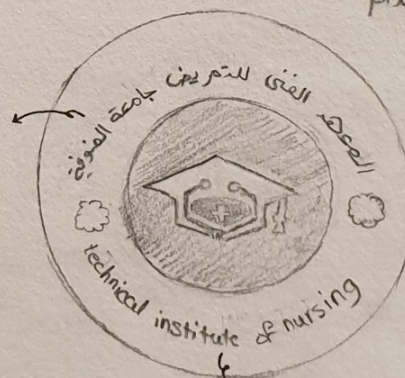 المعهد الفني للتمريض جامعة المنوفية
technical institute of nursing